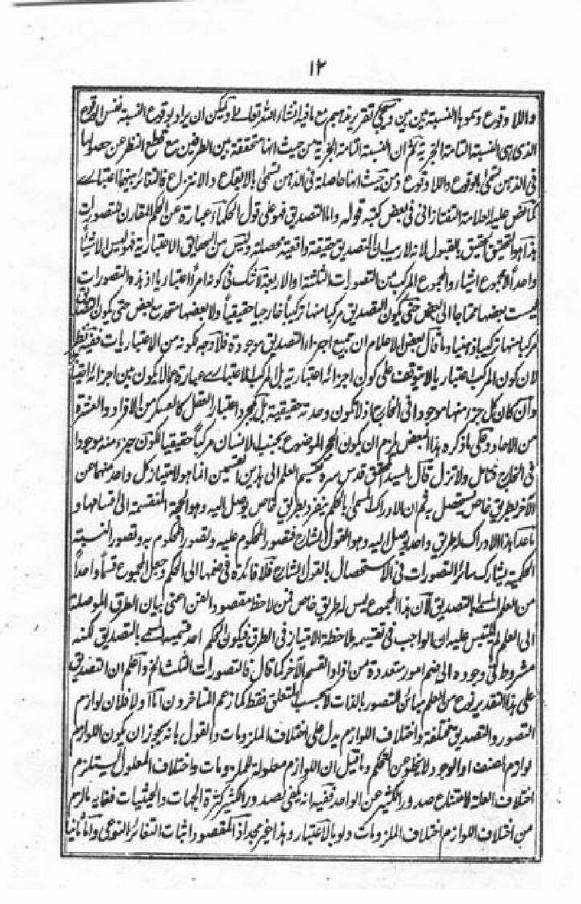 ١٢
واللا وقوع وسموها النسبة بين بين وسيجئ تقريره مع ما فيه انشاء الله تعالى ويمكن ان يراد بوقوع النسبة نفس الوقوع
الذى هى النسبة التامة الخبرية ثم ان النسبة التامة الخبرية من حيث انها متحققة بين الطرفين مع قطع النظر عن حصولها
فى الذهن تسمى بالوقوع واللا وقوع ومن حيث انها حاصلة فى الذهن تسمى بالايقاع والانتزاع فالتغاير بينهما اعتبارے
كما نص عليه العلامة التفتازانى فى بعض كتبه قوله واما التصديق فهو على قول الحكماء عبارة عن الحكم المقارن للتصورات
هذا هو التحقيق الحقيق بالقبول لانه لا ريب ان التصديق حقيقة واقعية محصلة وليس من الحقايق الاعتبارية فهو ليس الا شيئا
واحدا لا مجموع اشياء والمجموع المركب من التصورات الثلثة والاربعة لا شك فى كونه امرا اعتباريا اذ هذه التصورات
ليست بعضها محتاجا الى البعض حتى يكون التصديق مركبا منها تركيبا خارجيا حقيقيا ولا بعضها متحد مع بعض حتى يكون التصديق
مركبا منها تركيبا ذهنيا وما قال بعض الاعلام ان جميع اجزاء التصديق موجودة فلا وجه لكونه من الاعتباريات ففيه نظر
لان كون المركب اعتباريا لا يتوقف على كون اجزائه اعتبارية بل المركب الاعتبارے عبارة عما لا يكون بين اجزائه افتقار
وان كان كل جزء منها موجودا فى الخارج اذ لا يكون وحدته حقيقية بل بمجرد اعتبار العقل كالعسكر من الافراد والعشرة
من الآحاد وعلى ما ذكره هذا البعض يلزم ان يكون الحجر الموضوع بجنب الانسان مركبا حقيقيا لكون جزءه موجودا
فى الخارج فتامل ولا تزل قال السيد المحقق قدس سره تقسيم العلم الى هذين القسمين انما هو لامتياز كل واحد منهما عن
الآخر بطريق خاص يستحصل به ثم ان الادراك المسمى بالحكم ينفرد بطريق خاص يوصل اليه وهو الحجة المنقسمة الى اقسامها و
ما عدا هذا الادراك له طريق واحد يوصل اليه وهو القول الشارح فتصور المحكوم عليه وتصور المحكوم به وتصور النسبة
الحكمية يشارك سائر التصورات فى الاستحصال بالقول الشارح فلا فائدة فى ضمها الى الحكم وجعل المجموع قسما واحدا
من العلم المسمى بالتصديق لان هذا المجموع ليس له طريق خاص فمن لاحظ مقصود الفن اعنى بيان الطرق الموصلة
الى العلم لم يلتبس عليه ان الواجب فى تقسيمه ملاحظة الامتياز فى الطرق فيكون الحكم احد قسميه المسمى بالتصديق لكنه
مشروط فى وجوده الى ضم امور متعددة من افراد القسم الآخر كما قال فالتصورات الثلث الخ واعلم ان التصديق
على هذا التقدير نوع من العلم مباين للتصور بالذات لا بحسب المتعلق فقط كما زعم المتاخرون اما اولا فلان لوازم
التصور والتصديق مختلفة واختلاف اللوازم يدل على اختلاف الملزومات والقول بانه يجوز ان يكون اللوازم
لوازم الصنف او الوجود لا يخلو عن التحكم وما قيل ان اللوازم معلولة للملزومات واختلاف المعلول يستلزم
اختلاف العلة لامتناع صدور الكثير عن الواحد ففيه انه يكفى لصدور الكثير كثرة الجهات والحيثيات فغاية ما لزم
من اختلاف اللوازم اختلاف الملزومات ولو بالاعتبار وهذا غير مجد اذ المقصود اثبات التغاير النوعى واما ثانيا